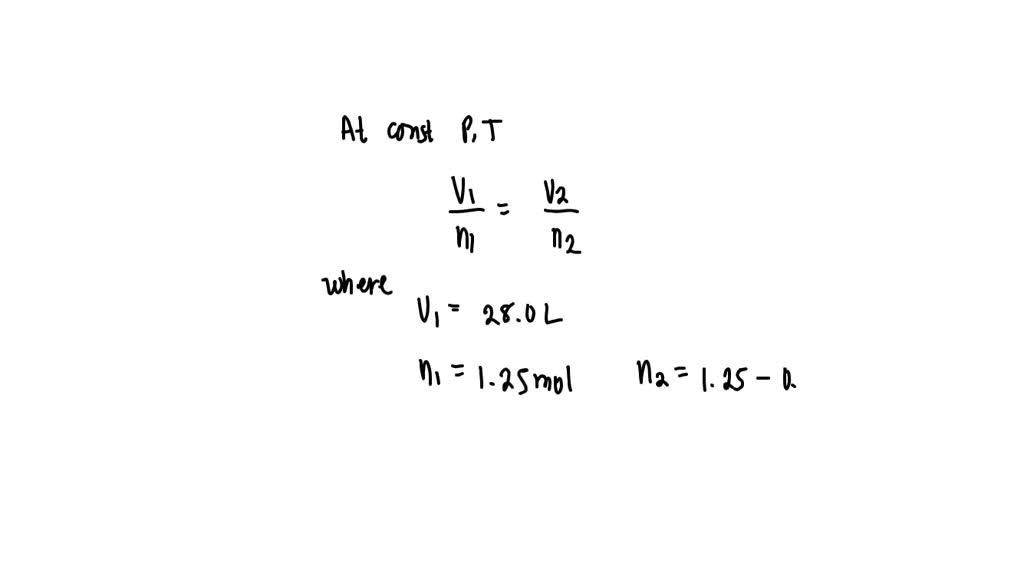 At const P, T
V1 / n1 = V2 / n2
where
V1 = 28.0 L
n1 = 1.25 mol n2 = 1.25 - 0.